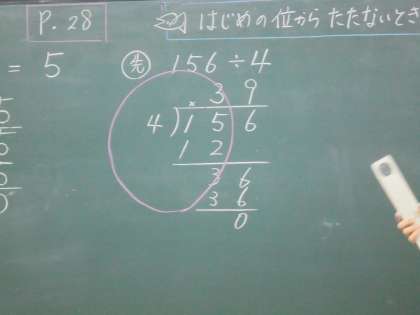 P.28
はじめの位から たたないとき
= 5
先 156÷4
× 3 9
4)1 5 6
1 2
3 6
3 6
0